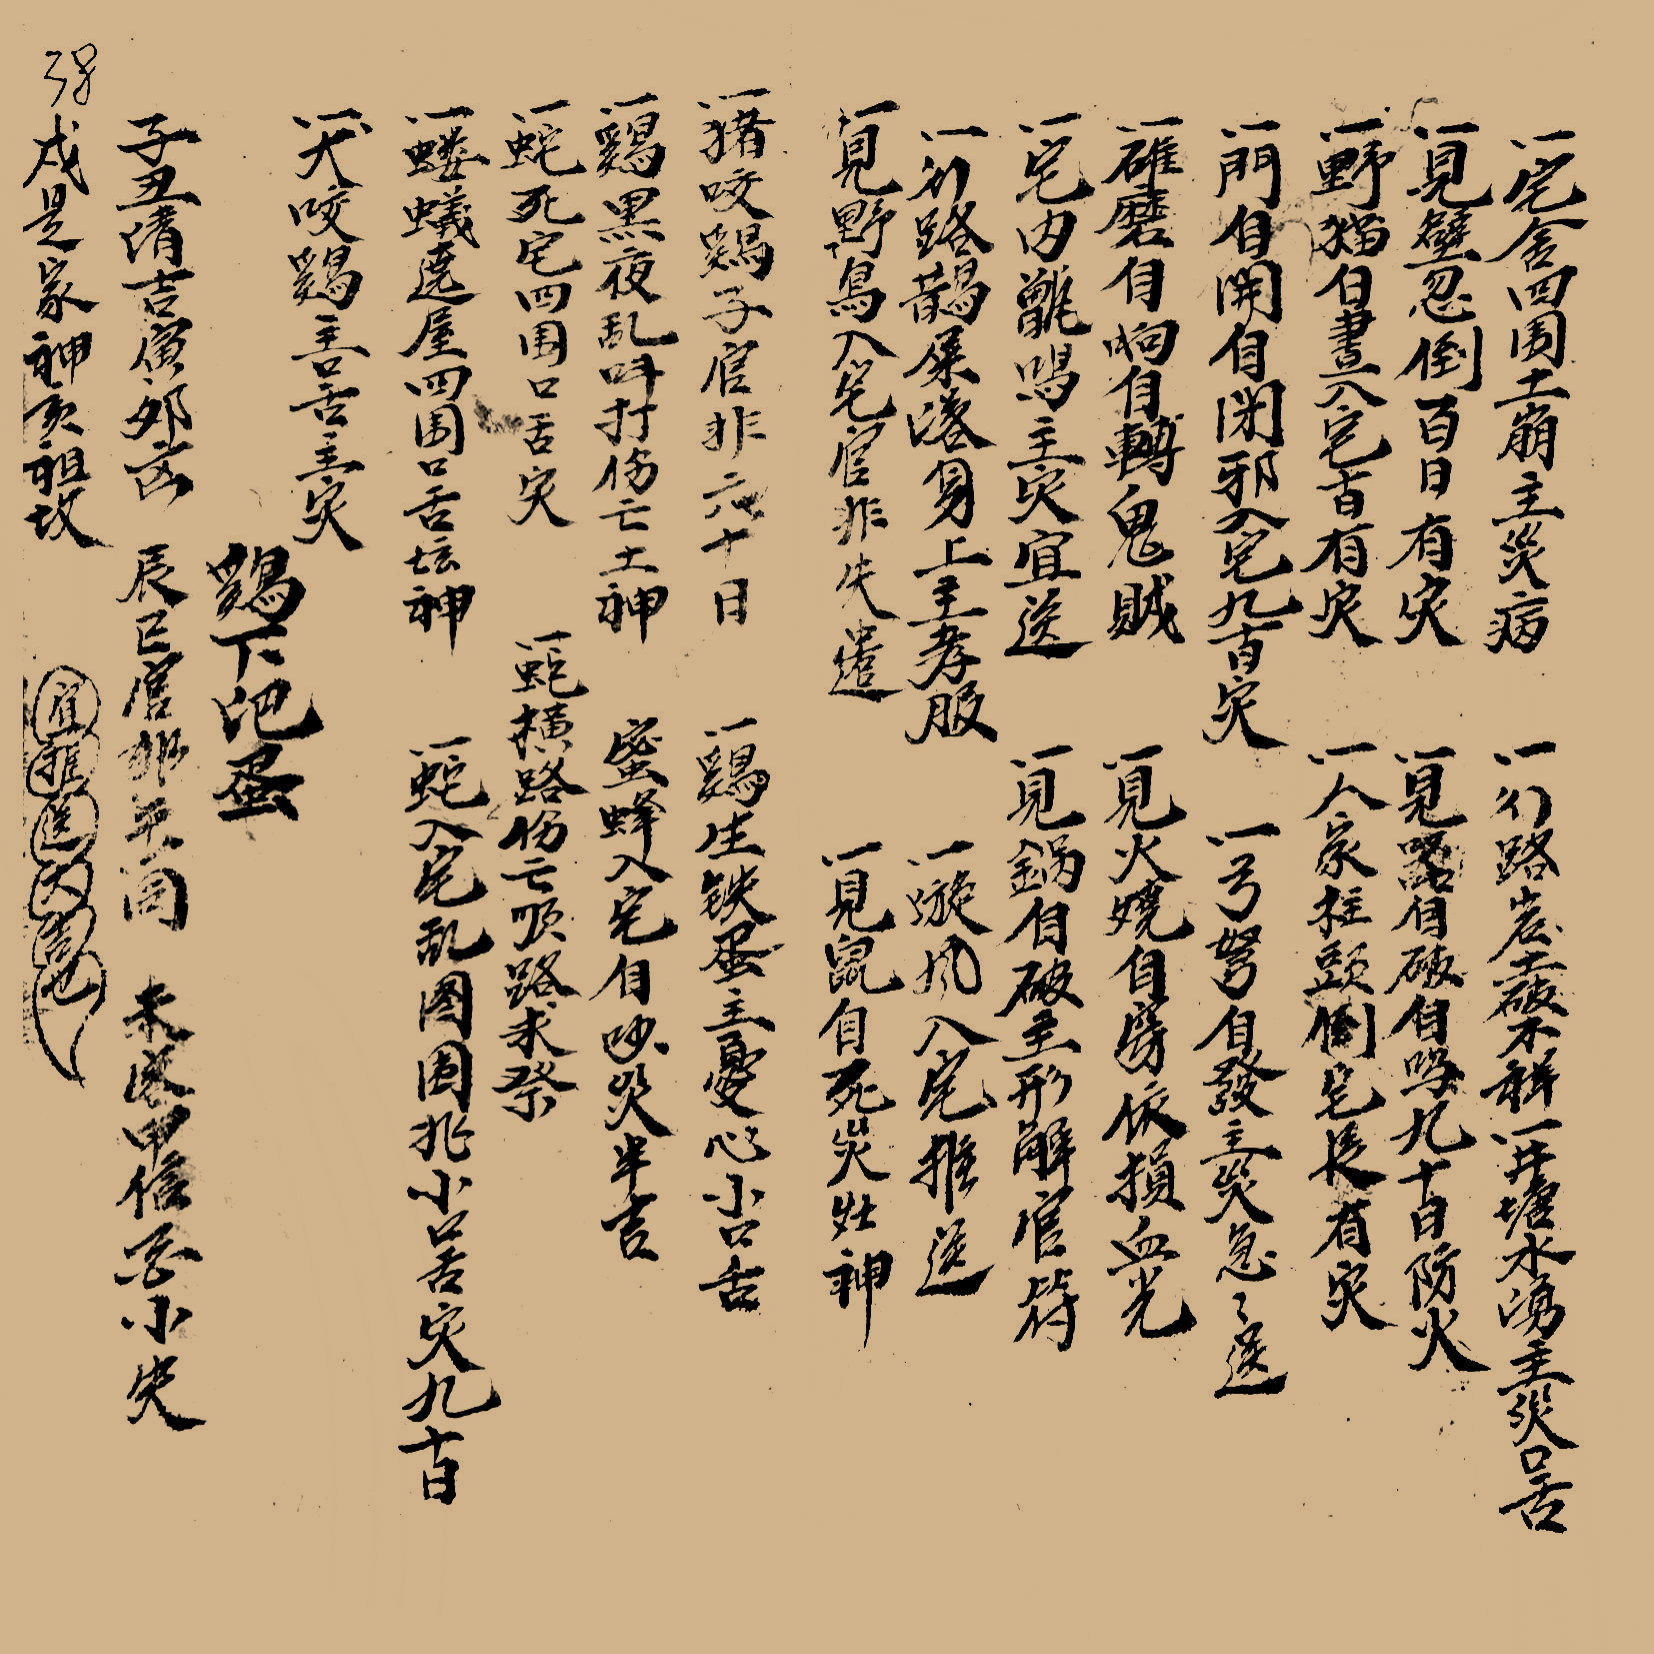 一宅舍四围土崩主災病
一行路岩土破不祥一井塘水湧主災口舌
一見壁忽倒百日有灾
一見 自破自鸣九十日防火
一野猫白晝入宅百日有灾
一人家柱頭倒宅長有灾
一門自開自闭邪入宅九百灾
一弓弩自發主災急々送
一碓磨自响自轉鬼賊
一見火燒自 依損血光
一宅内甑鳴主灾宜送
一見鍋自破主形解官符
一行路鵲屎落身上主孝服
一漩风入宅推送
一見野鳥入宅官非失遺
一見鼠自死災灶神
一猪咬鷄子官非六十日
一鷄生铁蛋主憂心小口舌
一鷄黑夜乱叫打伤亡土神
蜜蜂入宅自吵災半吉
一蛇死宅四围口舌灾
一蛇横路伤亡顺路求祭
一螻蟻遶屋四围口舌坛神
一蛇入宅乱图围扎小口舌灾九十日
一犬咬鷄主口舌主灾
鷄下 蛋
子丑清吉寅夘凶
辰巳官非午 同
未 申信酉小失
强
戌是家神亥祖坟
宜推送大吉也